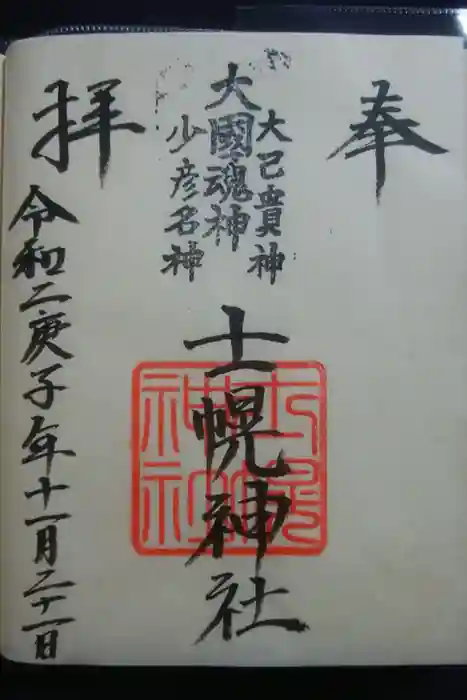 奉
大己貴神
大國魂神
少彦名神
士幌神社
士幌神社
拝
令和二庚子年十一月二十一日